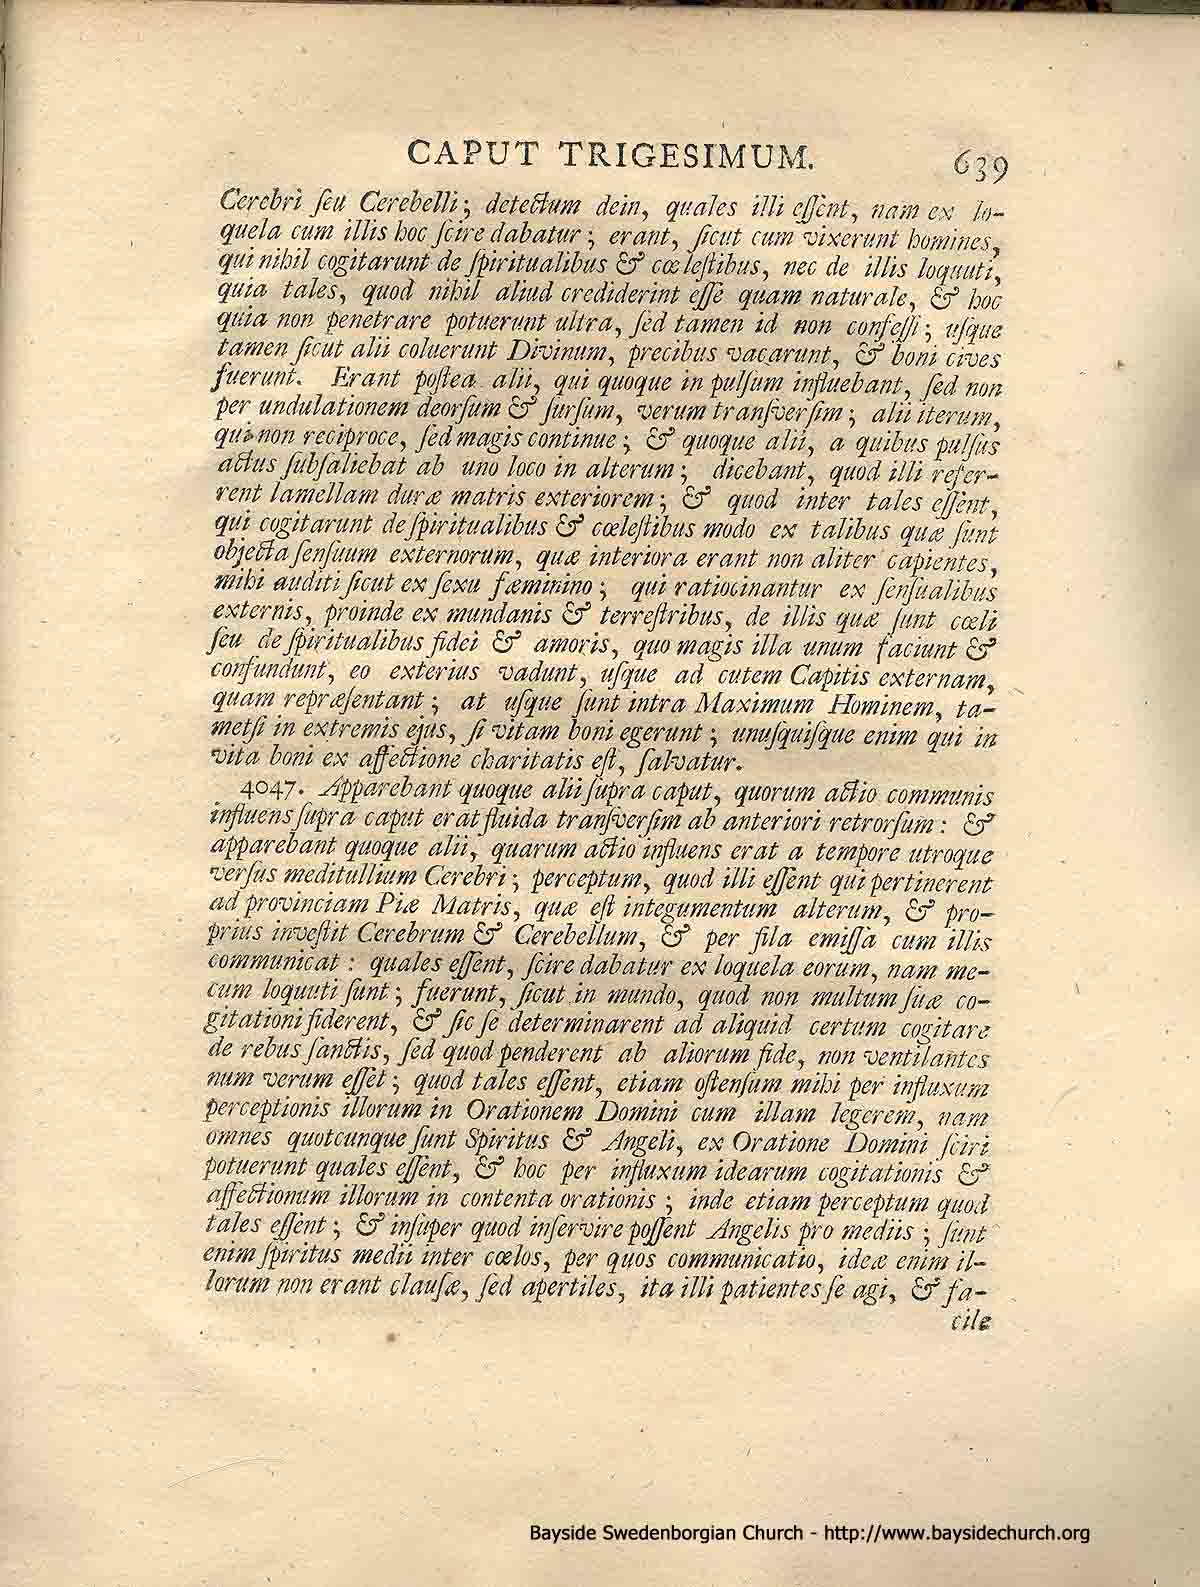 CAPUT TRIGESIMUM. 639
Cerebri ſeu Cerebelli; detectum dein, quales illi eſſent, nam ex lo-
quela cum illis hoc ſcire dabatur; erant, ſicut cum vixerunt homines,
qui nihil cogitarunt de ſpiritualibus & cœleſtibus, nec de illis loquuti,
quia tales, quod nihil aliud crediderint eſſe quam naturale, & hoc
quia non penetrare potuerunt ultra, ſed tamen id non confeſſi; uſque
tamen ſicut alii coluerunt Divinum, precibus vacarunt, & boni cives
fuerunt. Erant poſtea alii, qui quoque in pulſum influebant, ſed non
per undulationem deorſum & ſurſum, verum tranſverſim; alii iterum,
qui non reciproce, ſed magis continue; & quoque alii, a quibus pulſus
actus ſubſaliebat ab uno loco in alterum; dicebant, quod illi refer-
rent lamellam duræ matris exteriorem; & quod inter tales eſſent,
qui cogitarunt de ſpiritualibus & cœleſtibus modo ex talibus quæ ſunt
objecta ſenſuum externorum, quæ interiora erant non aliter capientes,
mihi auditi ſicut ex ſexu fæminino; qui ratiocinantur ex ſenſualibus
externis, proinde ex mundanis & terreſtribus, de illis quæ ſunt cœli
ſeu de ſpiritualibus fidei & amoris, quo magis illa unum faciunt &
confundunt, eo exterius vadunt, uſque ad cutem Capitis externam,
quam repræſentant; at uſque ſunt intra Maximum Hominem, ta-
metſi in extremis ejus, ſi vitam boni egerunt; unuſquiſque enim qui in
vita boni ex affectione charitatis eſt, ſalvatur.
4047. Apparebant quoque alii ſupra caput, quorum actio communis
influens ſupra caput erat fluida tranſverſim ab anteriori retrorſum: &
apparebant quoque alii, quarum actio influens erat a tempore utroque
verſus meditullium Cerebri; perceptum, quod illi eſſent qui pertinerent
ad provinciam Piæ Matris, quæ eſt integumentum alterum, & pro-
prius inveſtit Cerebrum & Cerebellum, & per fila emiſſa cum illis
communicat: quales eſſent, ſcire dabatur ex loquela eorum, nam me-
cum loquuti ſunt; fuerunt, ſicut in mundo, quod non multum ſuæ co-
gitationi fiderent, & ſic ſe determinarent ad aliquid certum cogitare
de rebus ſanctis, ſed quod penderent ab aliorum fide, non ventilantes
num verum eſſet; quod tales eſſent, etiam oſtenſum mihi per influxum
perceptionis illorum in Orationem Domini cum illam legerem, nam
omnes quotcunque ſunt Spiritus & Angeli, ex Oratione Domini ſciri
potuerunt quales eſſent, & hoc per influxum idearum cogitationis &
affectionum illorum in contenta orationis; inde etiam perceptum quod
tales eſſent; & inſuper quod inſervire poſſent Angelis pro mediis; ſunt
enim ſpiritus medii inter cœlos, per quos communicatio, ideæ enim il-
lorum non erant clauſæ, ſed apertiles, ita illi patientes ſe agi, & fa-
cile
Bayside Swedenborgian Church - http://www.baysidechurch.org